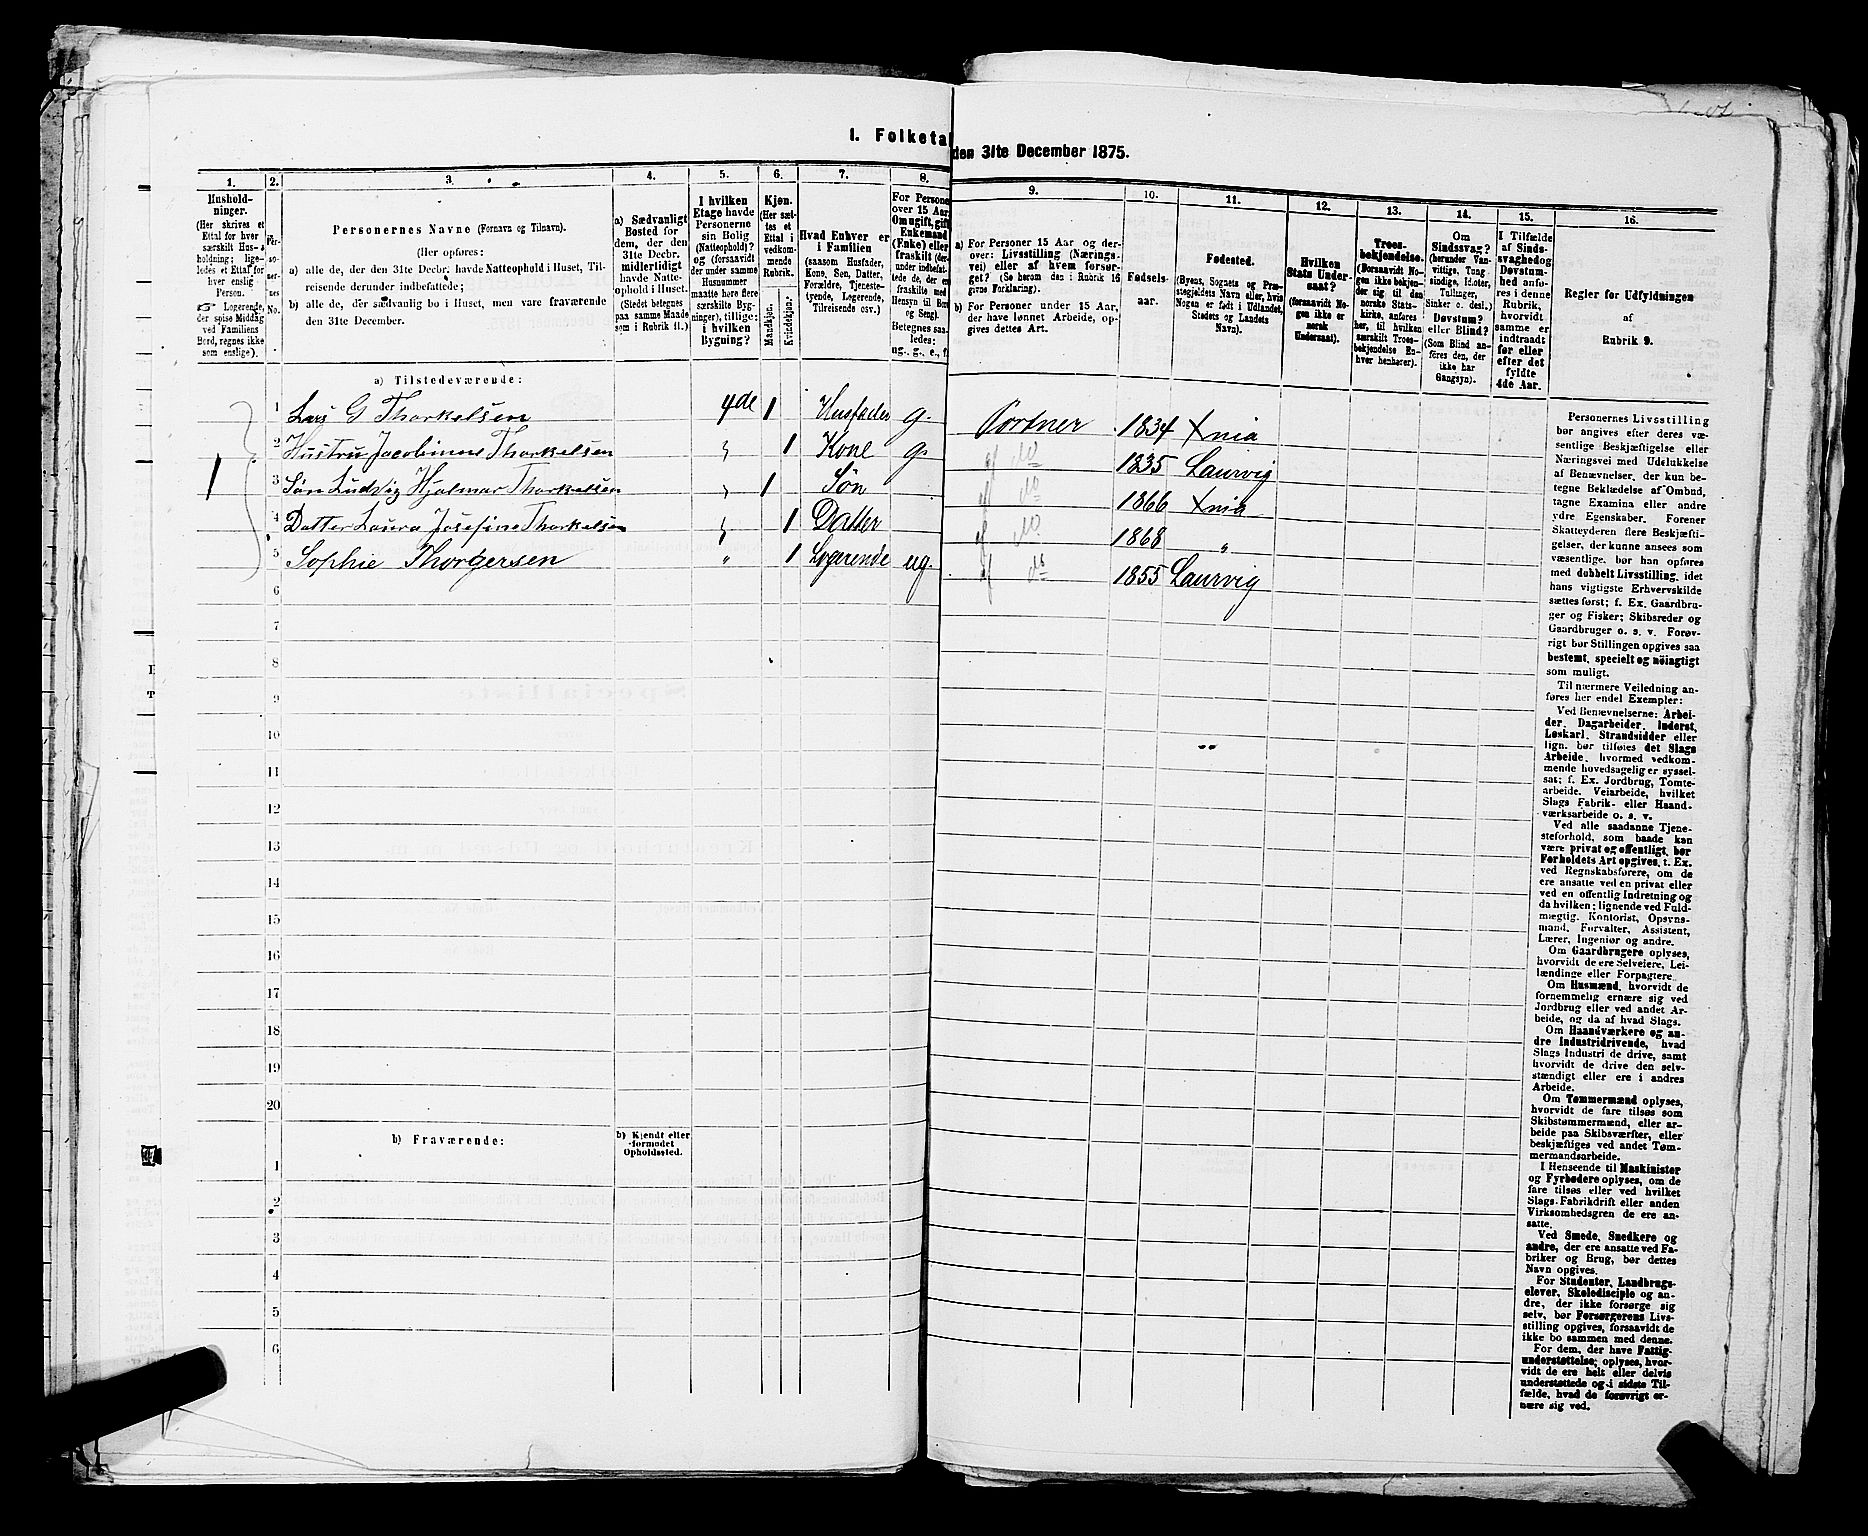 1. Folketal den 31te December 1875.
1. 2. 3. 4. 5. 6. 7. 8. 9. 10. 11. 12. 13. 14. 15. 16.
Hushold-
ninger.
(Her skrives et
Ettal for hver
særskilt Hus-
holdning; lige-
ledes et Ettal for
hver enslig
Person.
Logerende,
der spise Middag
ved Familiens
Bord, regnes ikke
som enslige).
Personernes Navne (Fornavn og Tilnavn).
(Her opføres:
a) alle de, der den 31te Decbr. havde Natteophold i Huset, Til-
reisende derunder indbefattede;
b) alle de, der sædvanlig bo i Huset, men vare fraværende
den 31te December.
a) Sædvanligt
Bosted for
dem, der den
31te Decbr.
midlertidigt
havde Natte-
ophold i Huset.
(Stedet betegnes
paa samme Maade
som i Rubrik 11.)
I hvilken
Etage havde
Personerne
sin Bolig
(Natteophold)?
og (forsaavidt
der under samme
Husnummer
maatte høre flere
særskilte Byg-
ninger), tillige:
i hvilken
Bygning?
Kjøn.
(Her sæt-
tes et
Ettal i
vedkom-
mende
Rubrik.
Mandkjøn.
Kvindekjøn.
Hvad Enhver er
i Familien
(saasom Husfader,
Kone, Søn, Datter,
Forældre, Tjeneste-
tyende, Logerende,
Tilreisende osv.)
For Persone
over 15 Aar
Omugift, gift
Enkemand
(Enke) eller
fraskilt (der-
under indbefat-
tede de, der ere
fraskilte med
Hensyn til Bord
og Seng).
Betegnes saa-
ledes:
ug., g., e., f.
a) For Personer 15 Aar og der-
over: Livsstilling (Nærings-
vei) eller af hvem forsør-
get? (Se herom den i Rubrik 16
givne Forklaring).
b) For Personer under 15 Aar,
der have lønnet Arbeide, op-
gives dettes Art.
Fødsels-
aar.
Fødested.
(Byens, Sognets og Præ-
stegjeldets Navn eller, hvis
Nogen er født i Udlandet,
Stedets og Landets
Navn).
Hvilken
Stats Under-
saat?
(forsaavidt No-
gen ikke er
norsk
Undersaat).
Troes-
bekjendelse.
(Forsaavidt No-
gen ikke bekjen-
der sig til den
norske Stats-
kirke, anføres
her, til hvilken
særskilt Troes-
bekjendelse En-
hver henhører).
Om
Sindssvag?
(herunder Van-
vittige, Tung-
sindige, Idioter,
Tullinger,
Sinker o. desl.)
Døvstum?
eller Blind?
(Som Blind an-
føres den, der
ikke har
Gangsyn).
I Tilfælde
af Sinds-
svaghed og
Døvstum-
hed anfø-
res i denne
Rubrik,
hvorvidt
samme er
indtraadt
før eller
efter det
fyldte
4de Aar.
Regler for Udfyldningen
af
Rubrik 9.
a) Tilstedeværende:
1 Lars G Thorkelsen 4de 1 Husfader g. Portner 1834 Xnia
2 Hustru Jacobinne Thorkelsen " 1 Kone g. do 1835 Laurvig
1 3 Søn Ludvig Hjalmar Thorkelsen " 1 Søn do 1866 Xnia
4 Datter Laura Josefine Thorkelsen " 1 Datter do 1868 "
5 Sophie Thorgersen " 1 Logerende ug. do 1855 Laurvig
6
7
8
9
10
11
12
13
14
15
16
17
18
19
20
b) Fraværende:
b) Kjendt eller
formodet
Opholdssted.
1
2
3
4
5
6
Personernes Livsstilling
bør angives efter deres væ-
sentlige Beskjæftigelse eller
Næringsvei med Udelukkelse
af Benævnelser, der kun be-
tegne Beklædelse af Ombud,
tagne Examina eller andre
ydre Egenskaber. Forener
Skatteyderen flere Beskjæfti-
gelser, der kunne ansees som
væsentlige, bør han opføres
med dobbelt Livsstilling, idet
hans vigtigste Erhvervskilde
sættes først; f. Ex. Gaardbru-
ger og Fisker; Skibsreder og
Gaardbruger o. s. v. Forøv-
rigt bør Stillingen opgives saa
bestemt, specielt og nøiagtigt
som muligt.
Til nærmere Veiledning an-
føres her endel Exempler:
Ved Benævnelserne: Arbei-
der, Dagarbeider, Inderst,
Løskarl, Strandsidder eller
lign. bør tilføies det Slags
Arbeide, hvormed vedkom-
mende hovedsagelig er syssel-
sat; f. Ex. Jordbrug, Tomte-
arbeide, Veiarbeide, hvilket
Slags Fabrik- eller Haand-
værksarbeide o. s. v.
Ved alle saadanne Tjene-
steforhold, som baade kan
være privat og offentligt, bør
Forholdets Art opgives, t. Ex.
ved Regnskabsførere, om de
ere ansatte ved en privat eller
ved en offentlig Indretning og
da hvilken; lignende ved Fuld-
mægtig, Kontorist, Opsyns-
mand, Forvalter, Assistent,
Lærer, Ingeniør og andre.
Om Gaardbrugere oplyses,
hvorvidt de ere Selveiere, Lei-
lændinge eller Forpagtere.
Om Husmænd, hvorvidt de
fornemmelig ernære sig ved
Jordbrug eller ved andet Ar-
beide, og da af hvad Slags.
Om Haandværkere og an-
dre Industridrivende, hvad
Slags Industri de drive, samt
hvorvidt de drive den selv-
stændigt eller ere i andres
Arbeide.
Om Tømmermænd oplyses,
hvorvidt de fare tilsøs som
Skibstømmermænd, eller ar-
beide paa Skibsværfter, eller
beskjæftiges ved andet Tøm-
mermandsarbeide.
I Henseende til Maskinister
og Fyrbødere oplyses, om de
fare tilsøs eller ved hvilket
Slags Fabrikdrift eller anden
Virksomhedsgren de ere an-
satte.
Ved Smede, Snedkere og
andre, der ere ansatte ved Fa-
briker og Brug, bør dettes
Navn opgives.
For Studenter, Landbrugs-
elever, Skoledisciple og an-
dre, der ikke forsørge sig
selv, bør Forsørgerens Livs-
stilling opgives, forsaavidt de
ikke bo sammen med denne.
For dem, der have Fattig-
understøttelse, oplyses, hvor-
vidt de ere helt eller delvis
understøttede og i sidste Til-
fælde, hvad de forøvrigt er-
nære sig ved.